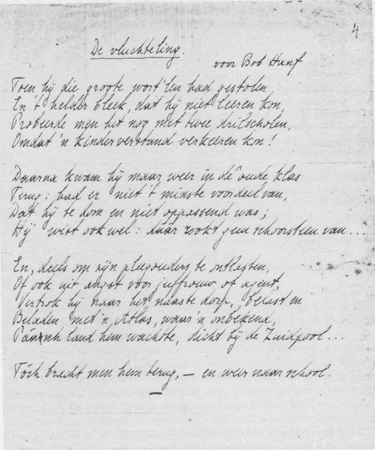 4
De vluchteling.
voor Bob Hanf
Toen hij die groote wort'len had gestolen
En 't helder bleek, dat hij niet leeren kon,
Probeerde men het nog met twee drilscholen,
Omdat 'n kinderverstand verkeeren kon!
Daarna kwam hij maar weer in de oude klas
Terug: had er niet 't minste voordeel van,
Dat hij te dom en niet oppassend was;
Hij wist ook wel: daar rookt geen schoorsteen van...
En, deels om zijn pleegouders te ontlasten,
Of ook uit angst voor juffrouw of agent,
Vertrok hij naar het naaste dorp,
Beladen met 'n Atlas, waar 'n onbekend,
land hem wachtte, dicht bij de Zuidpool...
Tóch bracht men hem terug, — en weer naar school.